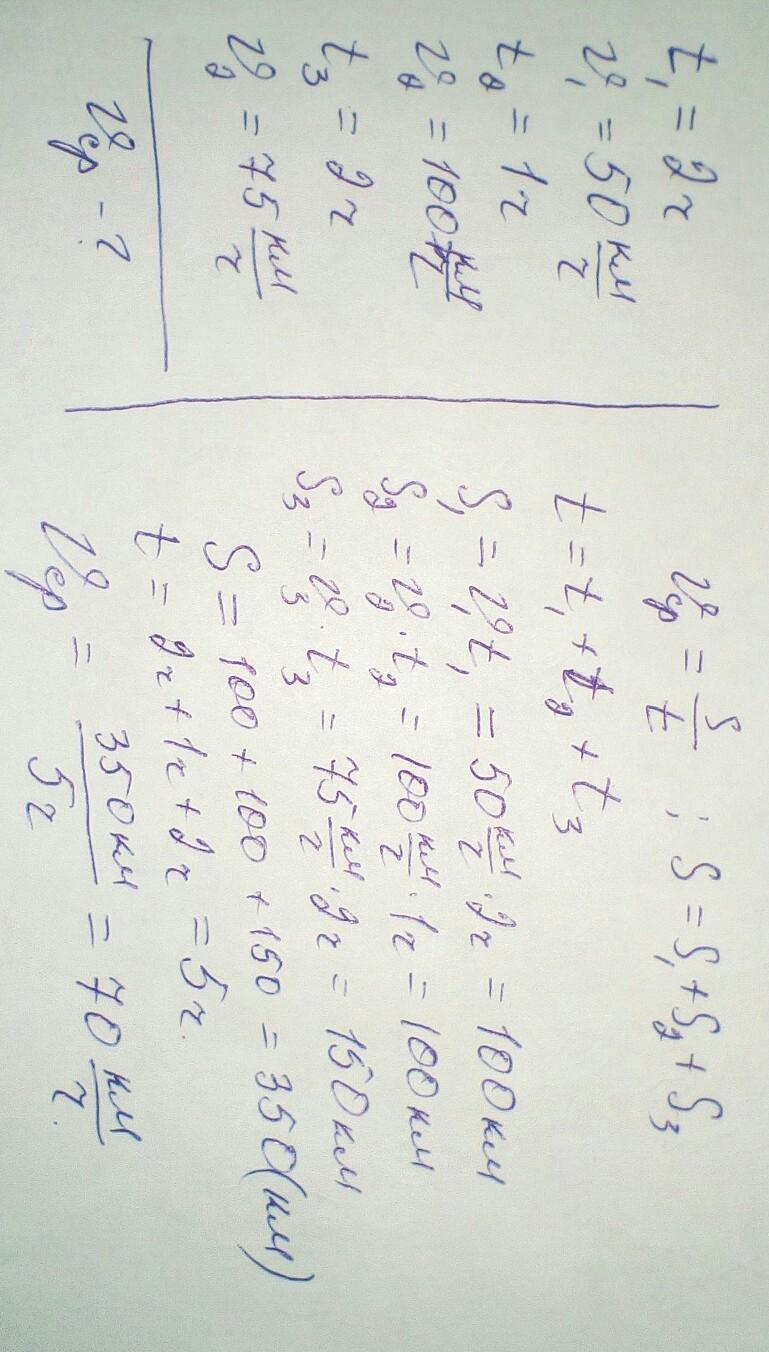 t₁ = 2ч
v₁ = 50 км/ч
t₂ = 1ч
v₂ = 100 км/ч
t₃ = 2ч
v₂ = 75 км/ч
vср - ?
vср = S/t ; S = S₁ + S₂ + S₃
t = t₁ + t₂ + t₃
S₁ = v₁t₁ = 50 км/ч · 2ч = 100 км
S₂ = v₂ · t₂ = 100 км/ч · 1ч = 100 км
S₃ = v₃ · t₃ = 75 км/ч · 2ч = 150 км
S = 100 + 100 + 150 = 350 (км)
t = 2ч + 1ч + 2ч = 5ч.
vср = 350 км/5ч = 70 км/ч.